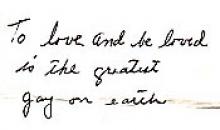 To love and be loved
is the greatest
joy on earth